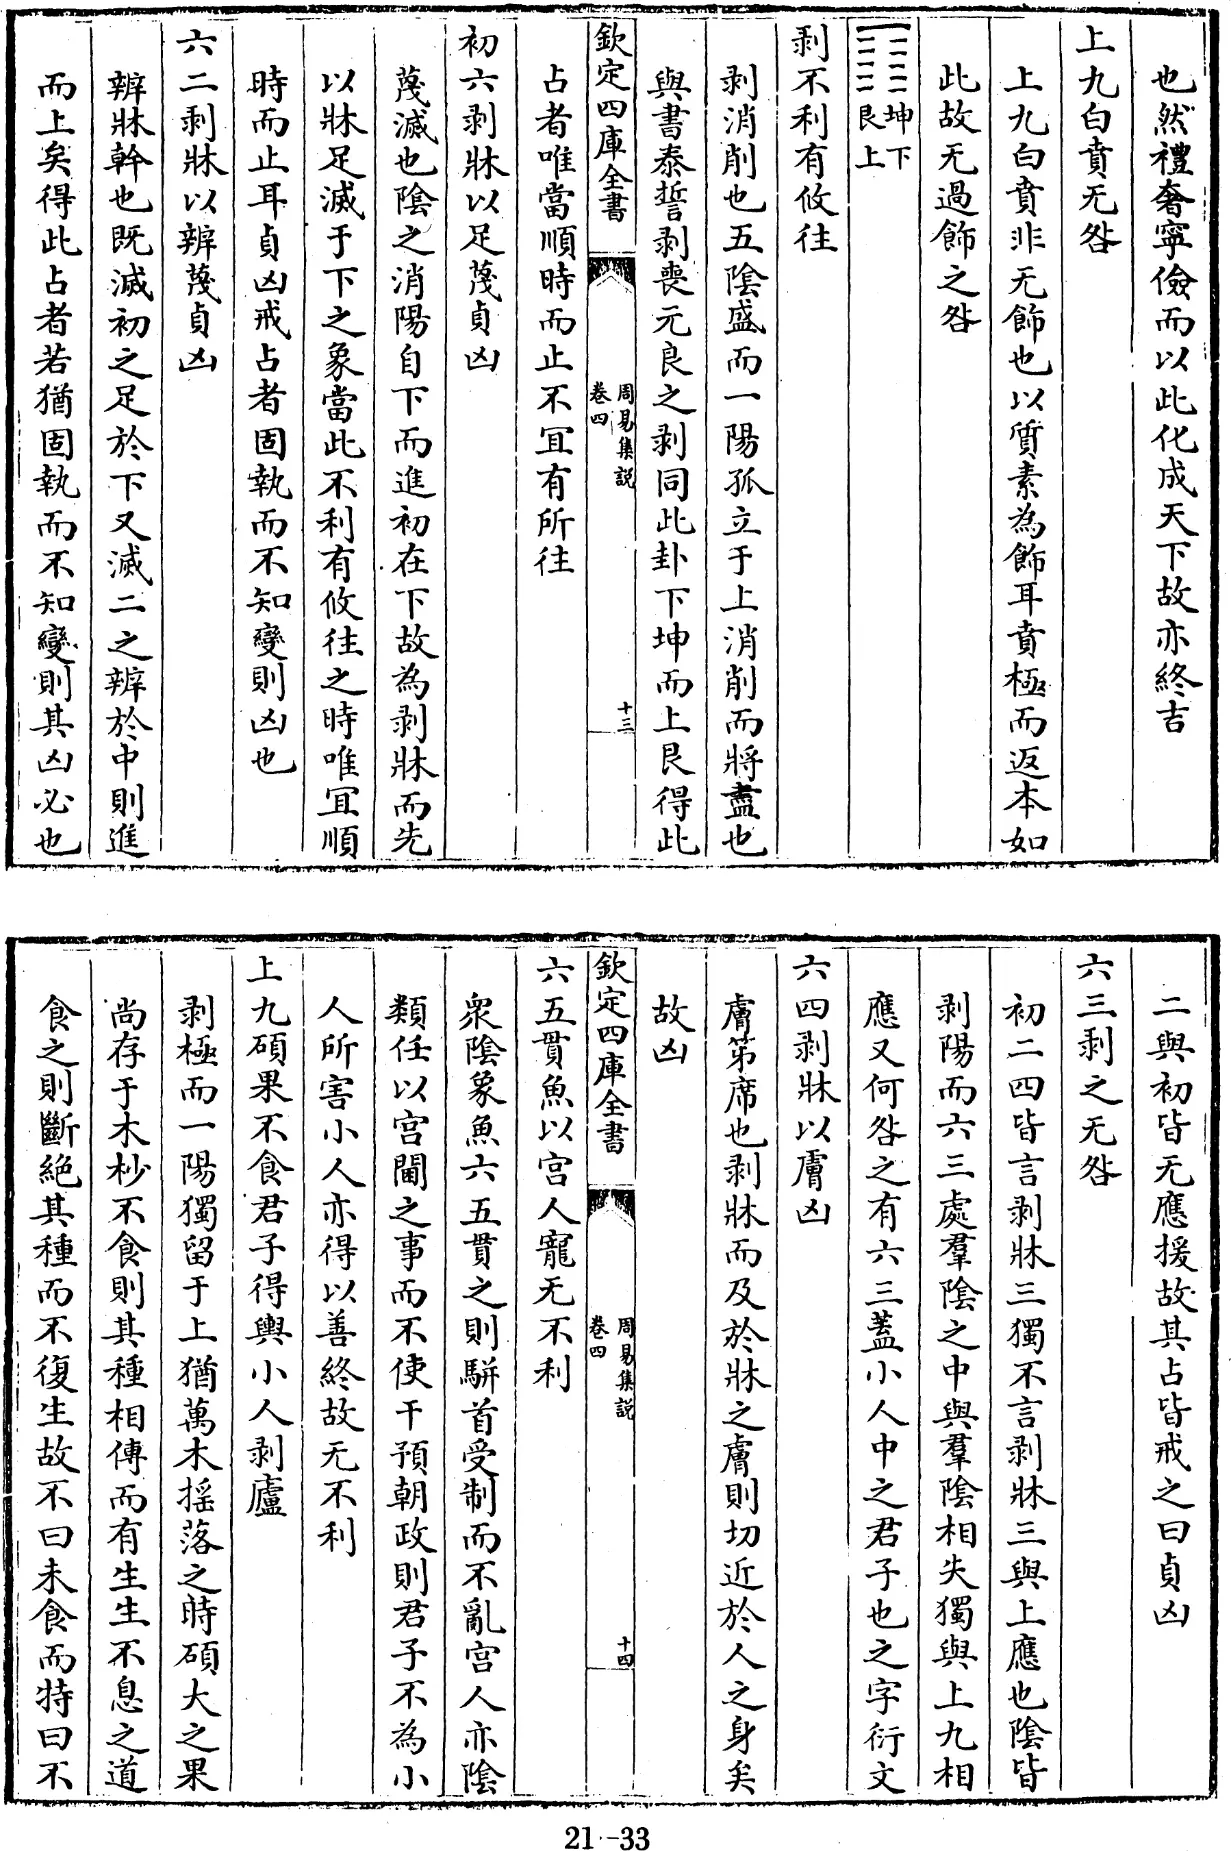 也然禮奢寧儉而以此化成天下故亦終吉
上九白賁无咎
上九白賁非无飾也以質素為飾耳賁極而返本如
此故无過飾之咎
坤下
艮上
剥不利有攸往
剥消削也五陰盛而一陽孤立于上消削而將盡也
與書泰誓剥喪元良之剥同此卦下坤而上艮得此
欽定四庫全書
周易集説
卷四
十三
占者唯當順時而止不宜有所往
初六剥牀以足蔑貞凶
蔑滅也陰之消陽自下而進初在下故為剥牀而先
以牀足滅于下之象當此不利有攸往之時唯宜順
時而止耳貞凶戒占者固執而不知變則凶也
六二剥牀以辨蔑貞凶
辨牀幹也既滅初之足於下又滅二之辨於中則進
而上矣得此占者若猶固執而不知變則其凶必也
二與初皆无應援故其占皆戒之曰貞凶
六三剥之无咎
初二四皆言剥牀三獨不言剥牀三與上應也陰皆
剥陽而六三處羣陰之中與羣陰相失獨與上九相
應又何咎之有六三葢小人中之君子也之字衍文
六四剥牀以膚凶
膚第席也剥牀而及於牀之膚則切近於人之身矣
故凶
欽定四庫全書
周易集説
卷四
十四
六五貫魚以宮人寵无不利
衆陰象魚六五貫之則駢首受制而不亂宮人亦陰
類任以宮闈之事而不使干預朝政則君子不為小
人所害小人亦得以善終故无不利
上九碩果不食君子得輿小人剥廬
剥極而一陽獨留于上猶萬木摇落之時碩大之果
尚存于木杪不食則其種相傳而有生生不息之道
食之則斷絶其種而不復生故不曰未食而特曰不
21-33